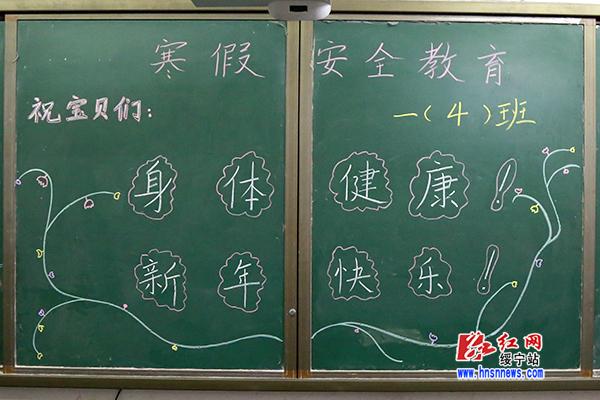 寒假安全教育
祝宝贝们：
一（4）班
身体健康！
新年快乐！
红网
绥宁站
www.hnsnnews.com